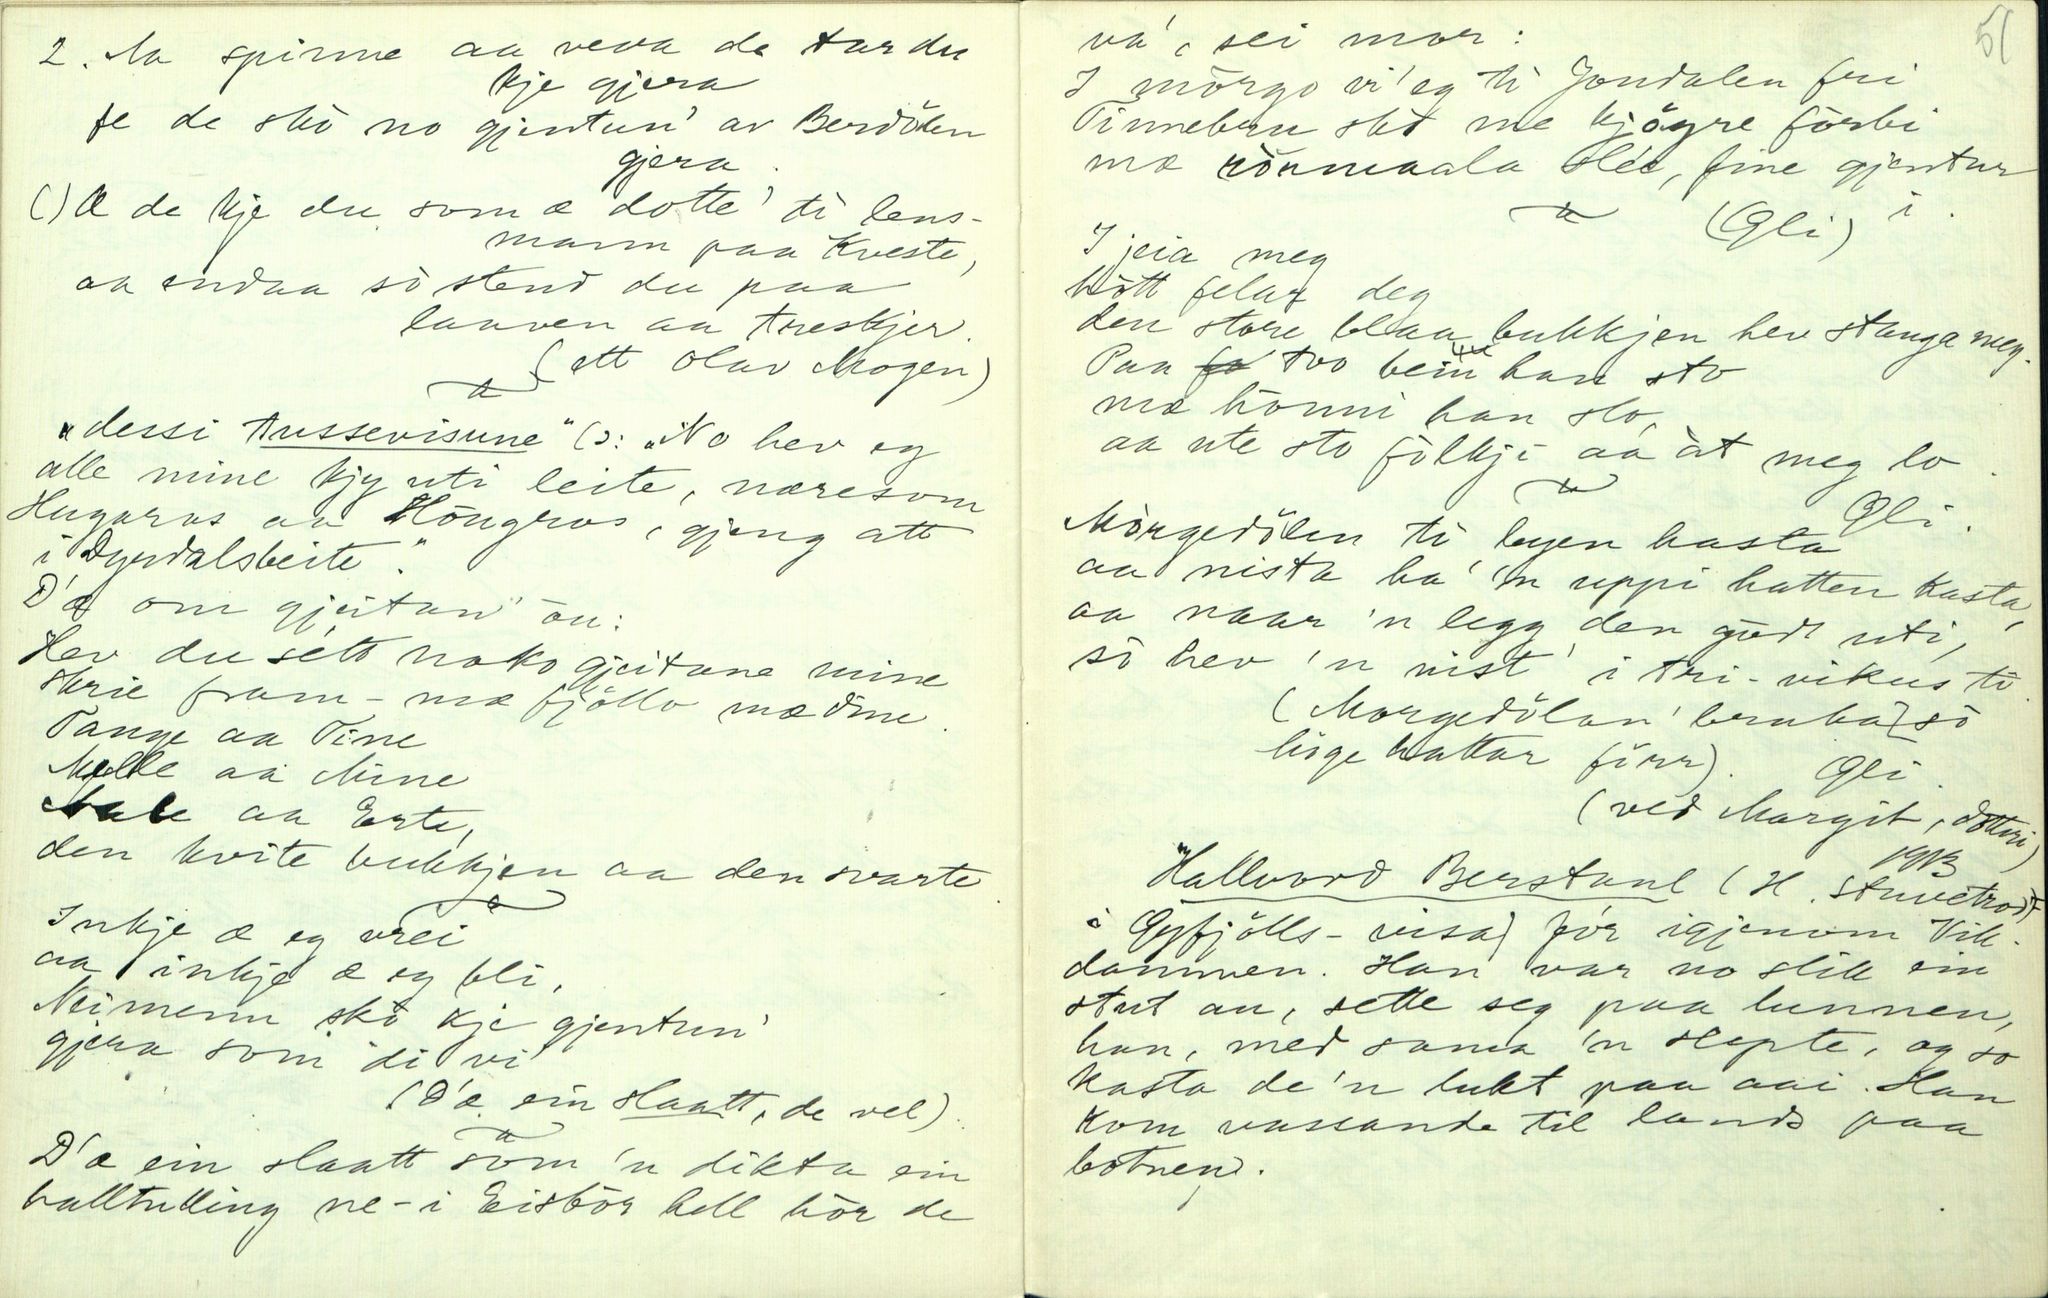 2. Aa spinne aa veva de tar du
kje gjera
fe de skò no gjentun' av Berdölen
gjera.
() Æ de kje du som æ dotte' ti lens-
mann paa Kveste,
aa endaa sò stend du paa
laaven aa treskjer.
(ett Olav Mogen)
"dessi Tussevisune" (ɔ: "No hev eg
alle mine kjy uti leite, næresom
Hugaros aa Höngros, gjeng att
i Dyrdalsbeite."
D'æ om gjeitan' au:
Hev du sétt noko gjeitane mine
skrie fram-mæ fjöllo mæ dine
Tange aa Tine
Melle aa Mine
aa Erte,
den kvite bukkjen aa den svarte
Inkje æ eg vrei
aa inkje æ eg bli,
Neimenn skò kje gjentun'
gjera som di vi'
(D'æ ein slaatt, de vel).
D'æ ein slaatt som 'n dikta ein
halltulling ne-i Eisbör hell hör de
51
va', sei mor:
I mörgo vi' eg ti Jondalen fri
Tinnebru skò me kjögre förbi
mæ rönmaala slée, fine gjentur
i.
(Gli)
I jeia meg
hött felar deg
den store blaa bukkjen hev stanga meg.
Paa tvo bein han sto
mæ hönni han slo,
aa ute sto fölkji aa àt meg lo.
Gli.
Mòrgedölen ti byen hasta
aa nista ha' 'n uppi hatten kasta,
aa naar 'n legg den godt uti,
sò hev 'n nist' i tri-vikus ti.
(Morgedölan' bruka sò
höge hattar förr). Gli.
(ved Margit, dotteri)
1913
"Hallvord Berstaul (H. Stuvetrodt
i Gyfjölls-visa) fór igjenom Vik-
dammen. Han var no slik ein
stut au, sette seg paa lunnen,
han, med sama 'n slepte, og so
kasta de 'n lukt paa aai. Han
kom vassande til lands paa
botnen.